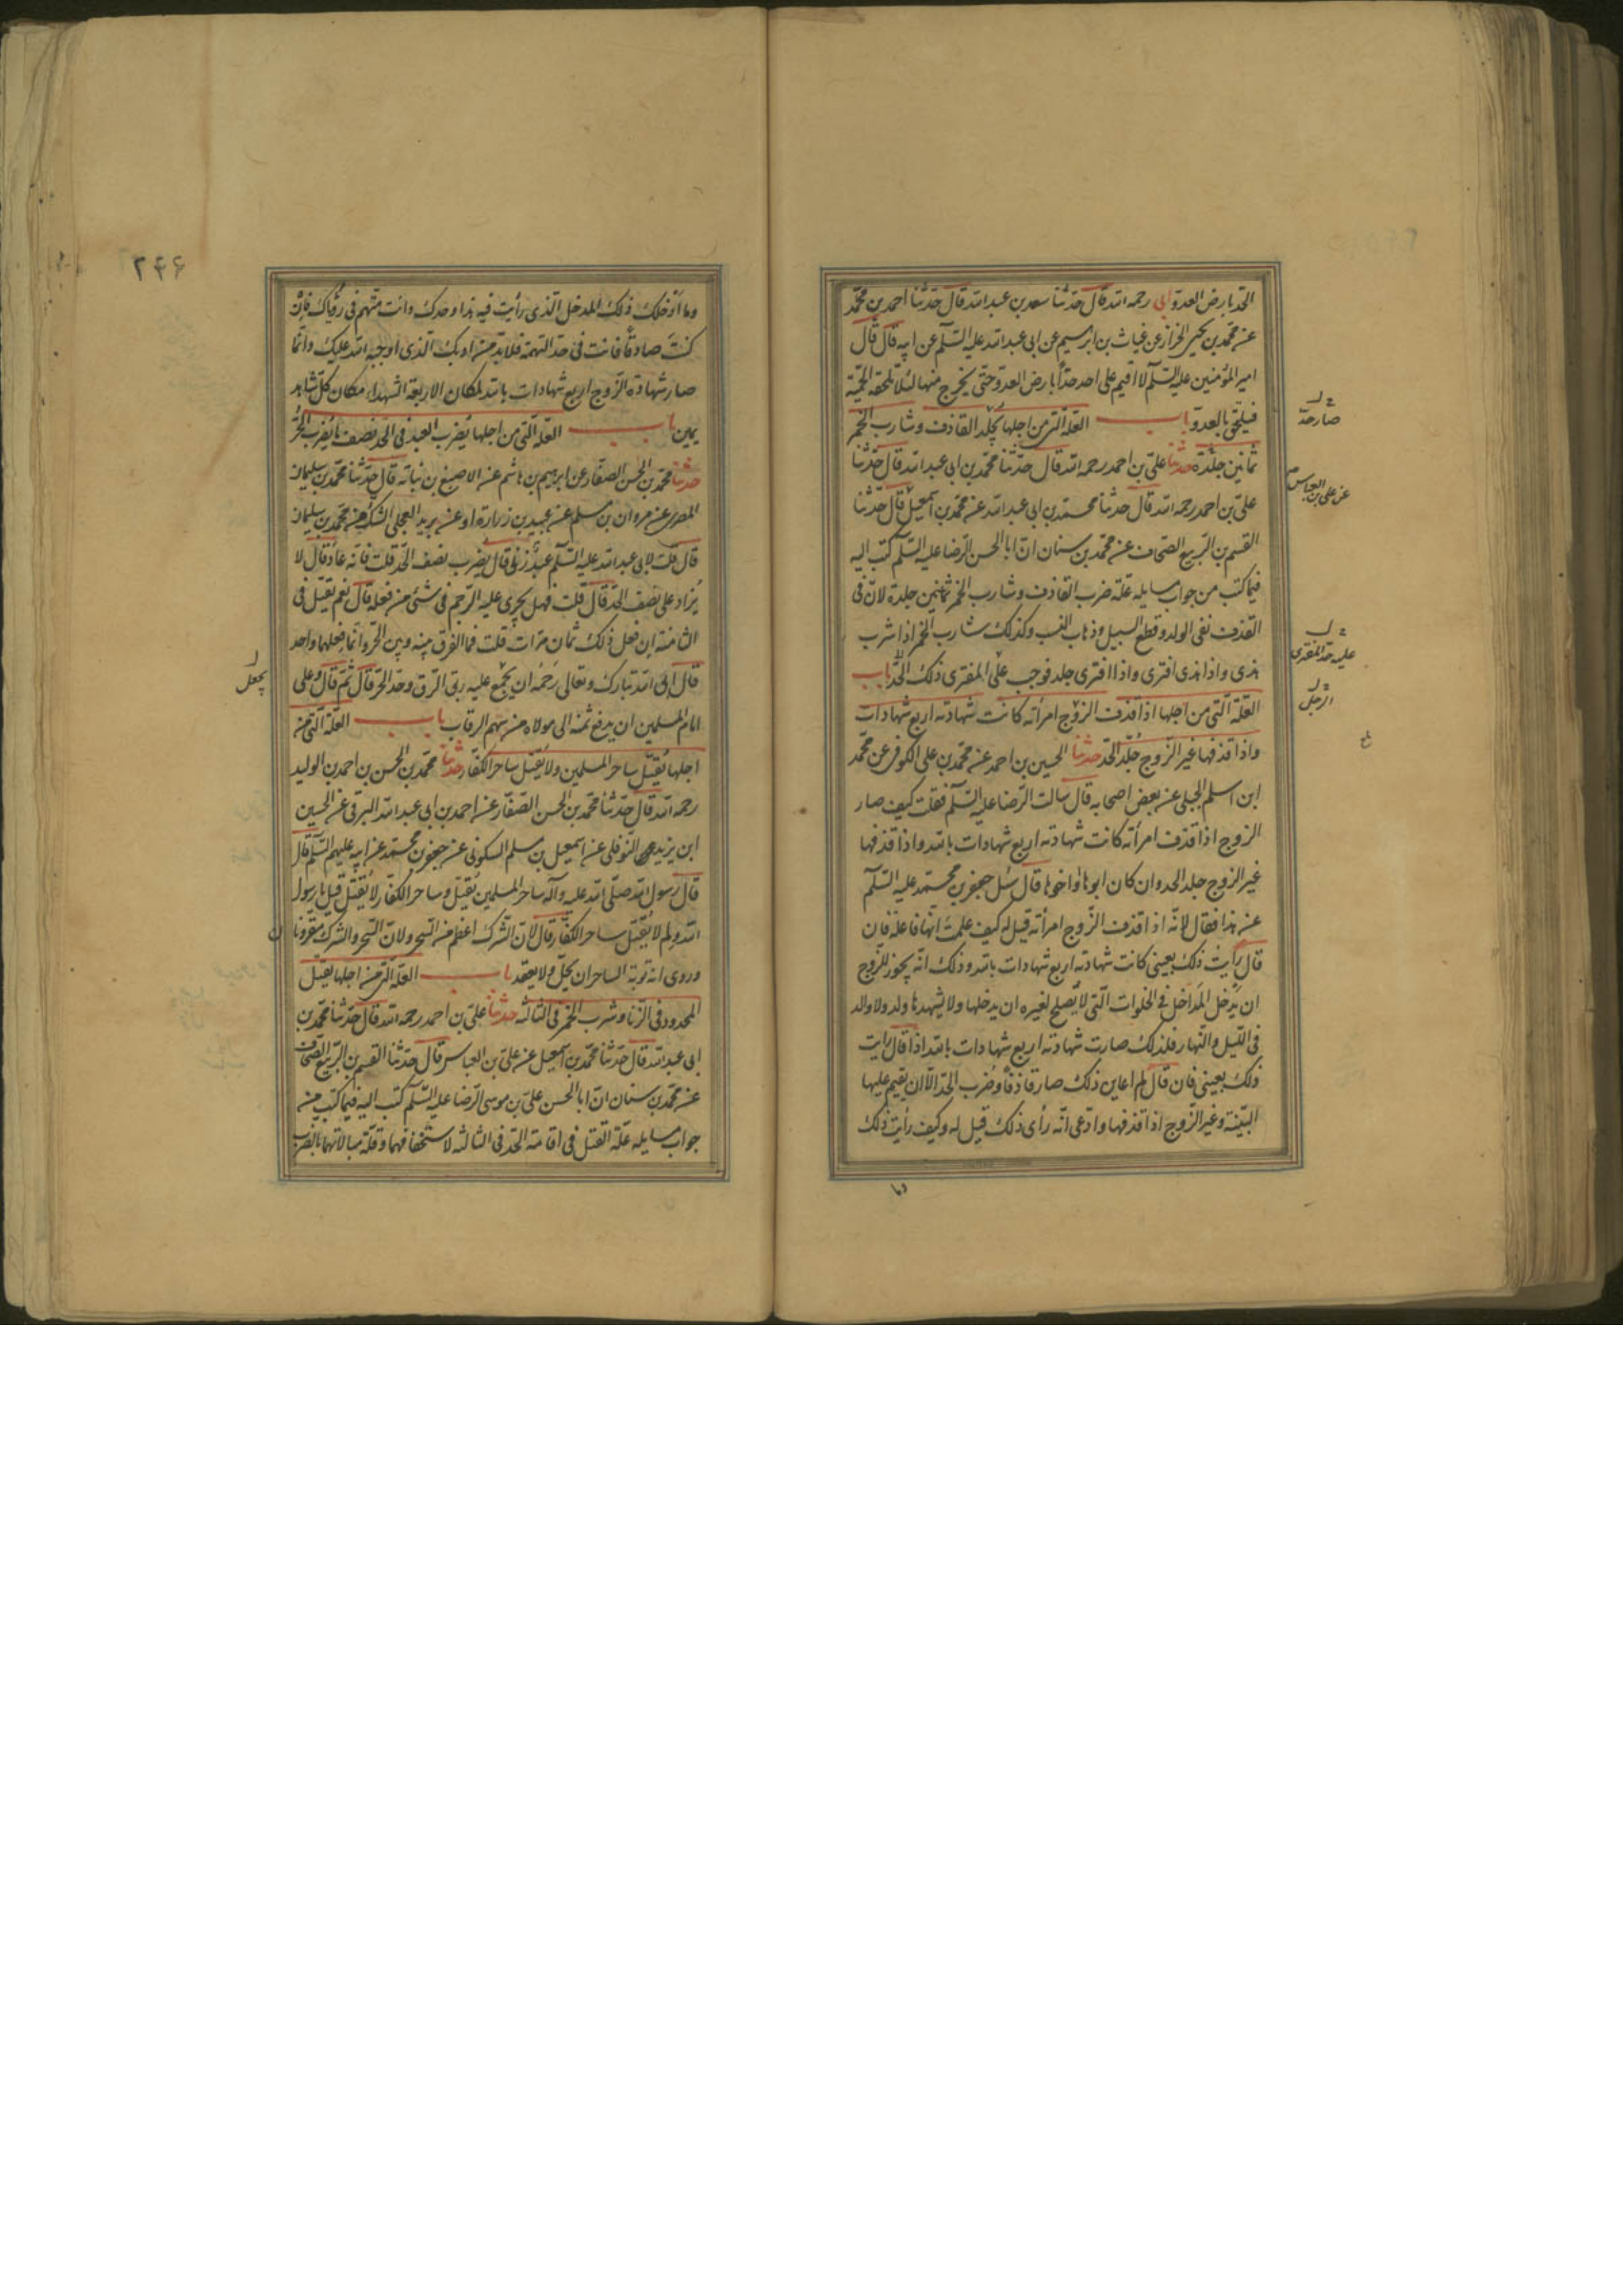 الحد بارض العدو ابي رحمه الله قال حدثنا سعد بن عبد الله قال حدثنا احمد بن محمد
عن محمد بن يحيى الخزاز عن غياث بن ابرهيم عن ابي عبد الله عليه السلم عن ابيه قال قال
امير المؤمنين عليه السلم لا اقيم على احد حدا بارض العدو حتى يخرج منها لئلا تلحقه الحمية
فيلحق بالعدو باب العلة التي من اجلها يجلد القاذف وشارب الخمر
ثمانين جلدة حدثنا علي بن احمد رحمه الله قال حدثنا محمد بن ابي عبد الله قال حدثنا
علي بن احمد رحمه الله قال حدثنا محمد بن ابي عبد الله عن محمد بن اسمعيل قال حدثنا
القسم بن الربيع الصحاف عن محمد بن سنان ان ابا الحسن الرضا عليه السلم كتب اليه
فيما كتب من جواب مسايله علة ضرب القاذف وشارب الخمر ثمانين جلدة لان في
القذف نفى الولد وقطع السبيل وذهاب النسب وكذلك شارب الخمر اذا شرب
هذى واذا هذى افترى واذا افترى جلد فوجب على المفترى ذلك الحد باب
العلة التي من اجلها اذا قذف الزوج امرأته كانت شهادته اربع شهادات
واذا قذفها غير الزوج جلد الحد حدثنا الحسين بن احمد عن محمد بن علي الكوفى عن محمد
ابن اسلم الجبلى عن بعض اصحابه قال سالت الرضا عليه السلم فقلت كيف صار
الزوج اذا قذف امرأته كانت شهادته اربع شهادات بالله واذا قذفها
غير الزوج جلد الحد وان كان ابوها واخوها قال سئل جعفر بن محمد عليه السلم
عن هذا فقال لانه اذا قذف الزوج امرأته قيل له كيف علمت انها فاعلة فان
قال رأيت ذلك بعيني كانت شهادته اربع شهادات بالله وذلك انه يجوز للزوج
ان يدخل المداخل في الخلوات التي لا يصلح لغيره ان يدخلها ولا يشهدها ولد ولا والد
في الليل والنهار فلذلك صارت شهادته اربع شهادات بالله اذا قال رايت
ذلك بعيني فان قال لم اعاين ذلك صار قاذفا وضرب الحد الا ان يقيم عليها
البينة وغير الزوج اذا قذفها وادعى انه رأى ذلك قيل له وكيف رأيت ذلك
وما
صار حد
عن علي بن العباس
عليه حد المفترى
الرجل
۲۴۶
وما ادخلك ذلك المدخل الذي رأيت فيه هذا وحدك وانت متهم في رؤياك فان
كنت صادقا فانت في حد التهمة فلابد من ادبك الذي اوجبه الله عليك وانما
صار شهادة الزوج اربع شهادات بالله لمكان الاربعة الشهداء مكان كل شاهد
يمين باب العلة التي من اجلها يضرب العبد في الحد نصف ما يضرب الحر
حدثنا محمد بن الحسن الصفار عن ابرهيم بن هاشم عن الاصبغ بن نباته قال حدثنا محمد بن سليمان
المصري عن مروان بن مسلم عن عبيد بن زرارة او عن بريد العجلي الشك من محمد بن سليمان
قال قلت لابي عبد الله عليه السلم عبد زنى قال يضرب نصف الحد قلت فانه عاد قال لا
يزاد على نصف الحد قال قلت فهل يجرى عليه الرجم في شئ من فعله قال نعم يقتل في
الثامنة ان فعل ذلك ثمان مرات قلت فما الفرق بينه وبين الحر وانما فعلهما واحد
قال ان الله تبارك وتعالى رحمه ان يجمع عليه ربق الرق وحد الحر قال ثم قال وعلى
امام المسلمين ان يدفع ثمنه الى مولاه من سهم الرقاب باب العلة التي من
اجلها يقتل ساحر المسلمين ولا يقتل ساحر الكفار حدثنا محمد بن الحسن بن احمد بن الوليد
رحمه الله قال حدثنا محمد بن الحسن الصفار عن احمد بن ابي عبد الله البرقي عن الحسين
ابن يزيد النوفلي عن اسمعيل بن مسلم السكوني عن جعفر بن محمد عن ابيه عليهم السلم قال
قال رسول الله صلى الله عليه وآله ساحر المسلمين يقتل وساحر الكفار لا يقتل قيل يا رسول
الله ولم لا يقتل ساحر الكفار قال لان الشرك اعظم من السحر ولان السحر والشرك مقرونان
وروى ان توبة الساحر ان يحل ولا يعقد باب العلة التي من اجلها يقتل
المحدود في الزنا وشرب الخمر في الثالثة حدثنا علي بن احمد رحمه الله قال حدثنا محمد بن
ابي عبد الله قال حدثنا محمد بن اسمعيل عن علي بن العباس قال حدثنا القسم بن الربيع الصحاف
عن محمد بن سنان ان ابا الحسن علي بن موسى الرضا عليه السلم كتب اليه فيما كتب من
جواب مسايله علة القتل في اقامة الحد في الثالثة لاستخفافهما وقلة مبالاتهما بالضرب
يجعل